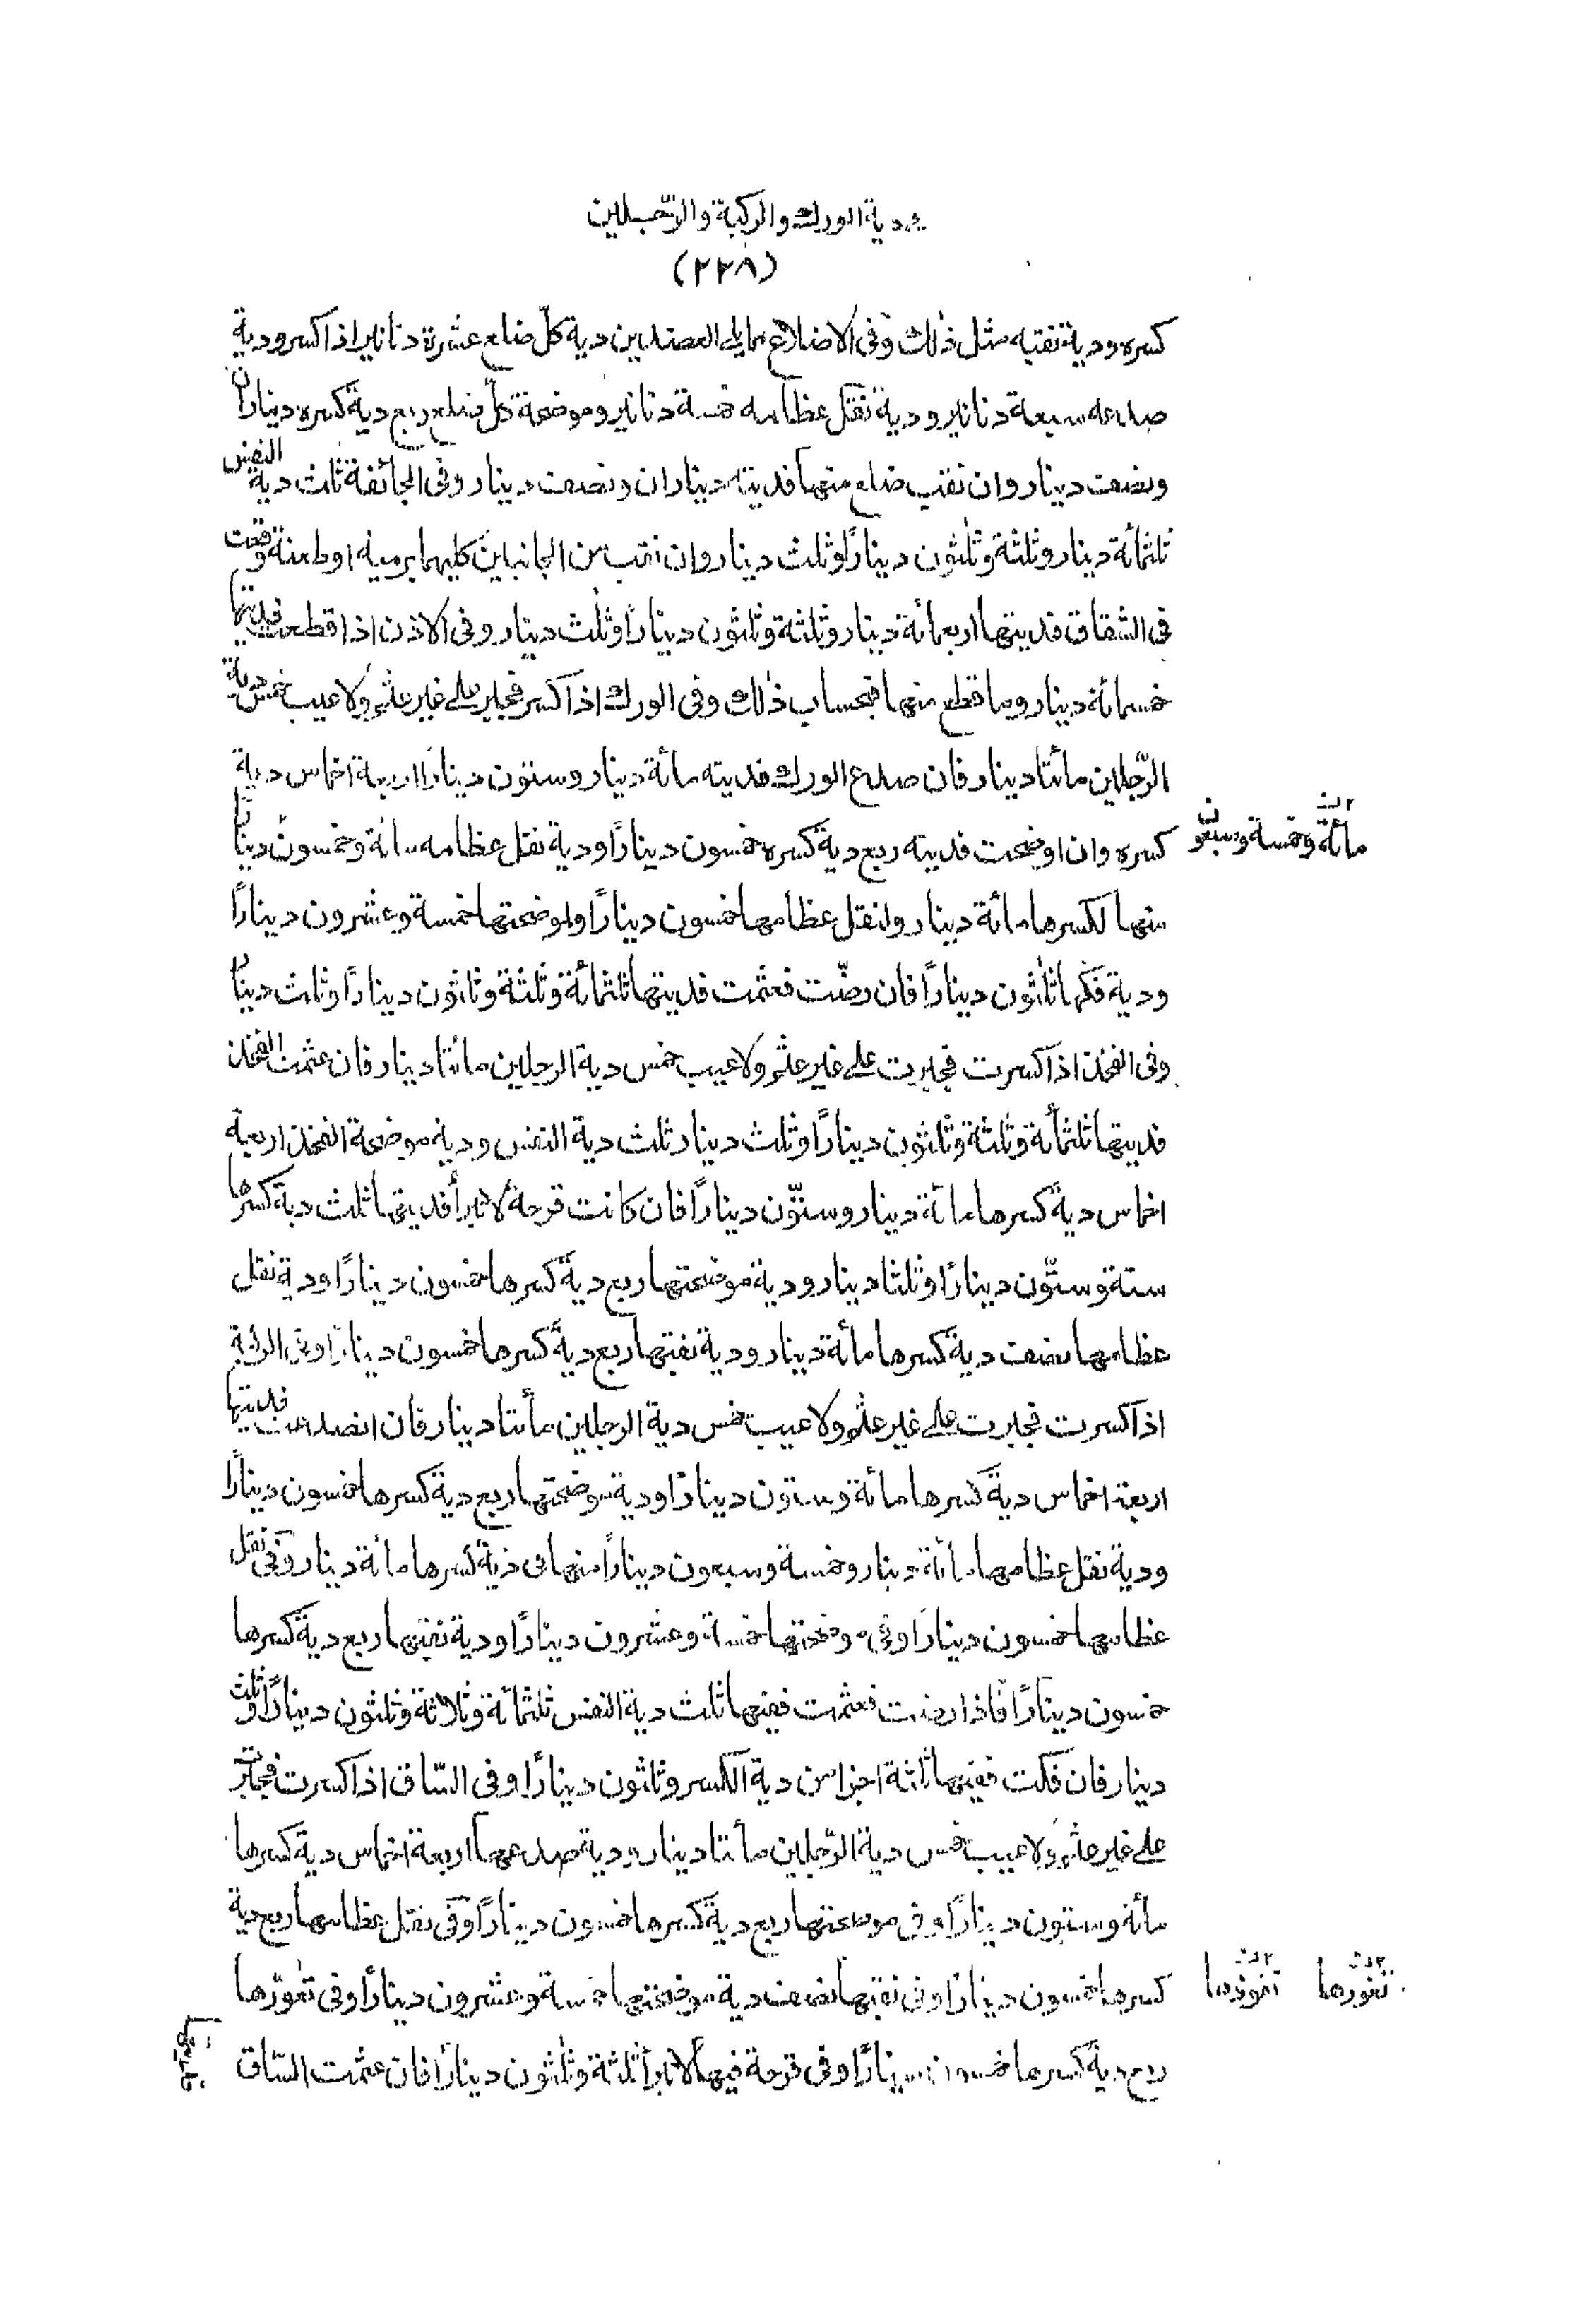 دية الورك والركبة والرّجلين
(٢٢٨)
كسره ودية نقبه مثل ذلك وفى الاضلاع مما يلى العضدين دية كلّ ضلع عشرة دنانير اذا كسر ودية
صدعه سبعة دنانير ودية نقل عظامه خمسة دنانير وموضحة كلّ ضلع ربع دية كسره ديناران
ونصف دينار وان نقب ضلع منها فديته ديناران ونصف دينار وفى الجائفة ثلث دية النفس
ثلثمائة دينار وثلثة وثلثون دينارًا وثلث دينار وان نقب من الجانبين كليهما برمية او طعنة وقعت
فى الشقاق فديتها اربعمائة دينار وثلثة وثلثون دينارًا وثلث دينار وفى الاذن اذا قطعت فديتها
خمسمائة دينار وما قطع منها فبحساب ذلك وفى الورك اذا كسر فجبر على غير عثم ولا عيب خمس دية
الرّجلين مائتا دينار فان صدع الورك فديته مائة دينار وستون دينارًا اربعة اخماس دية
كسره وان اوضحت فديته ربع دية كسره خمسون دينارًا ودية نقل عظامه مائة وخمسون دينارًا
مائة وخمسة وسبعون
منها لكسرها مائة دينار ولنقل عظامها خمسون دينارًا ولموضحتها خمسة وعشرون دينارًا
ودية فكّها ثلثون دينارًا فان رضّت فعثمت فديتها ثلثمائة وثلثة وثلثون دينارًا وثلث دينار
وفى الفخذ اذا كسرت فجبرت على غير عثم ولا عيب خمس دية الرجلين مائتا دينار فان عثمت الفخذ
فديتها ثلثمائة وثلثة وثلثون دينارًا وثلث دينار ثلث دية النفس ودية موضحة الفخذ اربعة
اخماس دية كسرها مائة دينار وستّون دينارًا فان كانت قرحة لا تبرأ فديتها ثلث دية كسرها
ستة وستّون دينارًا وثلثا دينار ودية موضحتها ربع دية كسرها خمسون دينارًا ودية نقل
عظامها نصف دية كسرها مائة دينار ودية نقبها ربع دية كسرها خمسون دينارًا وفى الركبة
اذا كسرت فجبرت على غير عثم ولا عيب خمس دية الرجلين مأتتا دينار فان انصدعت فديتها
اربعة اخماس دية كسرها مائة وستون دينارًا ودية موضحتها ربع دية كسرها خمسون دينارًا
ودية نقل عظامها مائة دينار وخمسة وسبعون دينارًا منها فى دية كسرها مائة دينار وفى نقل
عظامها خمسون دينارًا وفى موضحتها خمسة وعشرون دينارًا ودية نقبها ربع دية كسرها
خمسون دينارًا فاذا رضت فعثمت ففيها ثلث دية النفس ثلثمائة وثلاثة وثلثون دينارًا وثلث
دينار فان فكت ففيها ثلثة اجزا من دية الكسر وثلثون دينارًا وفى السّاق اذا كسرت فجبرت
على غير عثم ولا عيب خمس دية الرّجلين مأتا دينار ودية صدعها اربعة اخماس دية كسرها
مائة وستون دينارًا وفى موضحتها ربع دية كسرها خمسون دينارًا وفى نقل عظامها ربع دية
كسرها خمسون دينارًا وفى نقبها نصف دية موضحتها خمسة وعشرون دينارًا وفى تعوّرها
تغورها تغوذها
ربع دية كسرها خمسون دينارًا وفى قرحة فيها لا تبرأ ثلثة وثلثون دينارًا فان عثمت السّاق